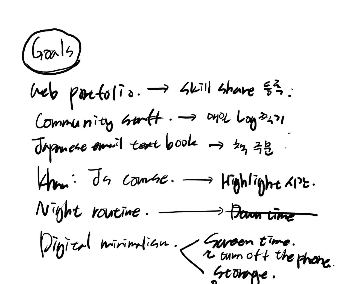 Goals
Web portfolio. → skill share 등록.
Community → 매일 log 적기
Japanese email text book → 책 주문
Khan: Js course. → Highlight 시간.
Night routine. → Down time
Digital minimalism
Screen time.
turn off the phone.
Storage.